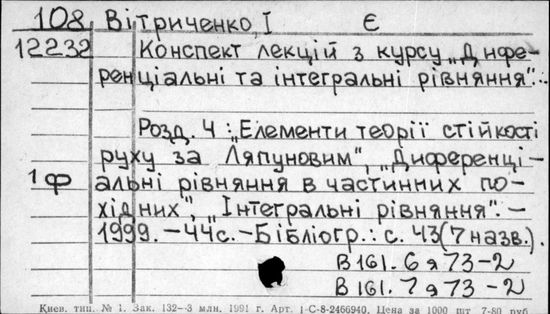 108, Вітриченко, І Є
12232 Конспект лекцій з курсу „Дифе-
ренціальні та інтегральні рівняння“.
Розд. 4: „Елементи теорії стійкості
руху за Ляпуновим“, „Диференці-
1ф альні рівняння в частинних по-
хідних“, „Інтегральні рівняння“. –
1999. – 44с. – Бібліогр.: с. 43 (7 назв.).
В161.6 я 73-2
В161.7 я 73-2
Киев. тип. № 1. Зак. 132—3 млн. 1991 г. Арт. 1-С-8-2466940. Цена за 1000 шт 7-80 руб